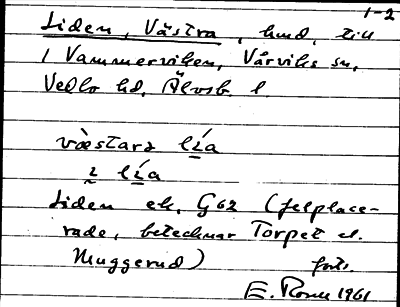 1-2
Liden, Västra, hmd, till
1 Vammerviken, Vårviks sn,
Vedbo hd, Älvsb. l.
væ̀stara lía
i lía
Liden ek. G62 (felplace-
rade, betecknar Torpet el.
Muggerud)
forts.
E. 1961